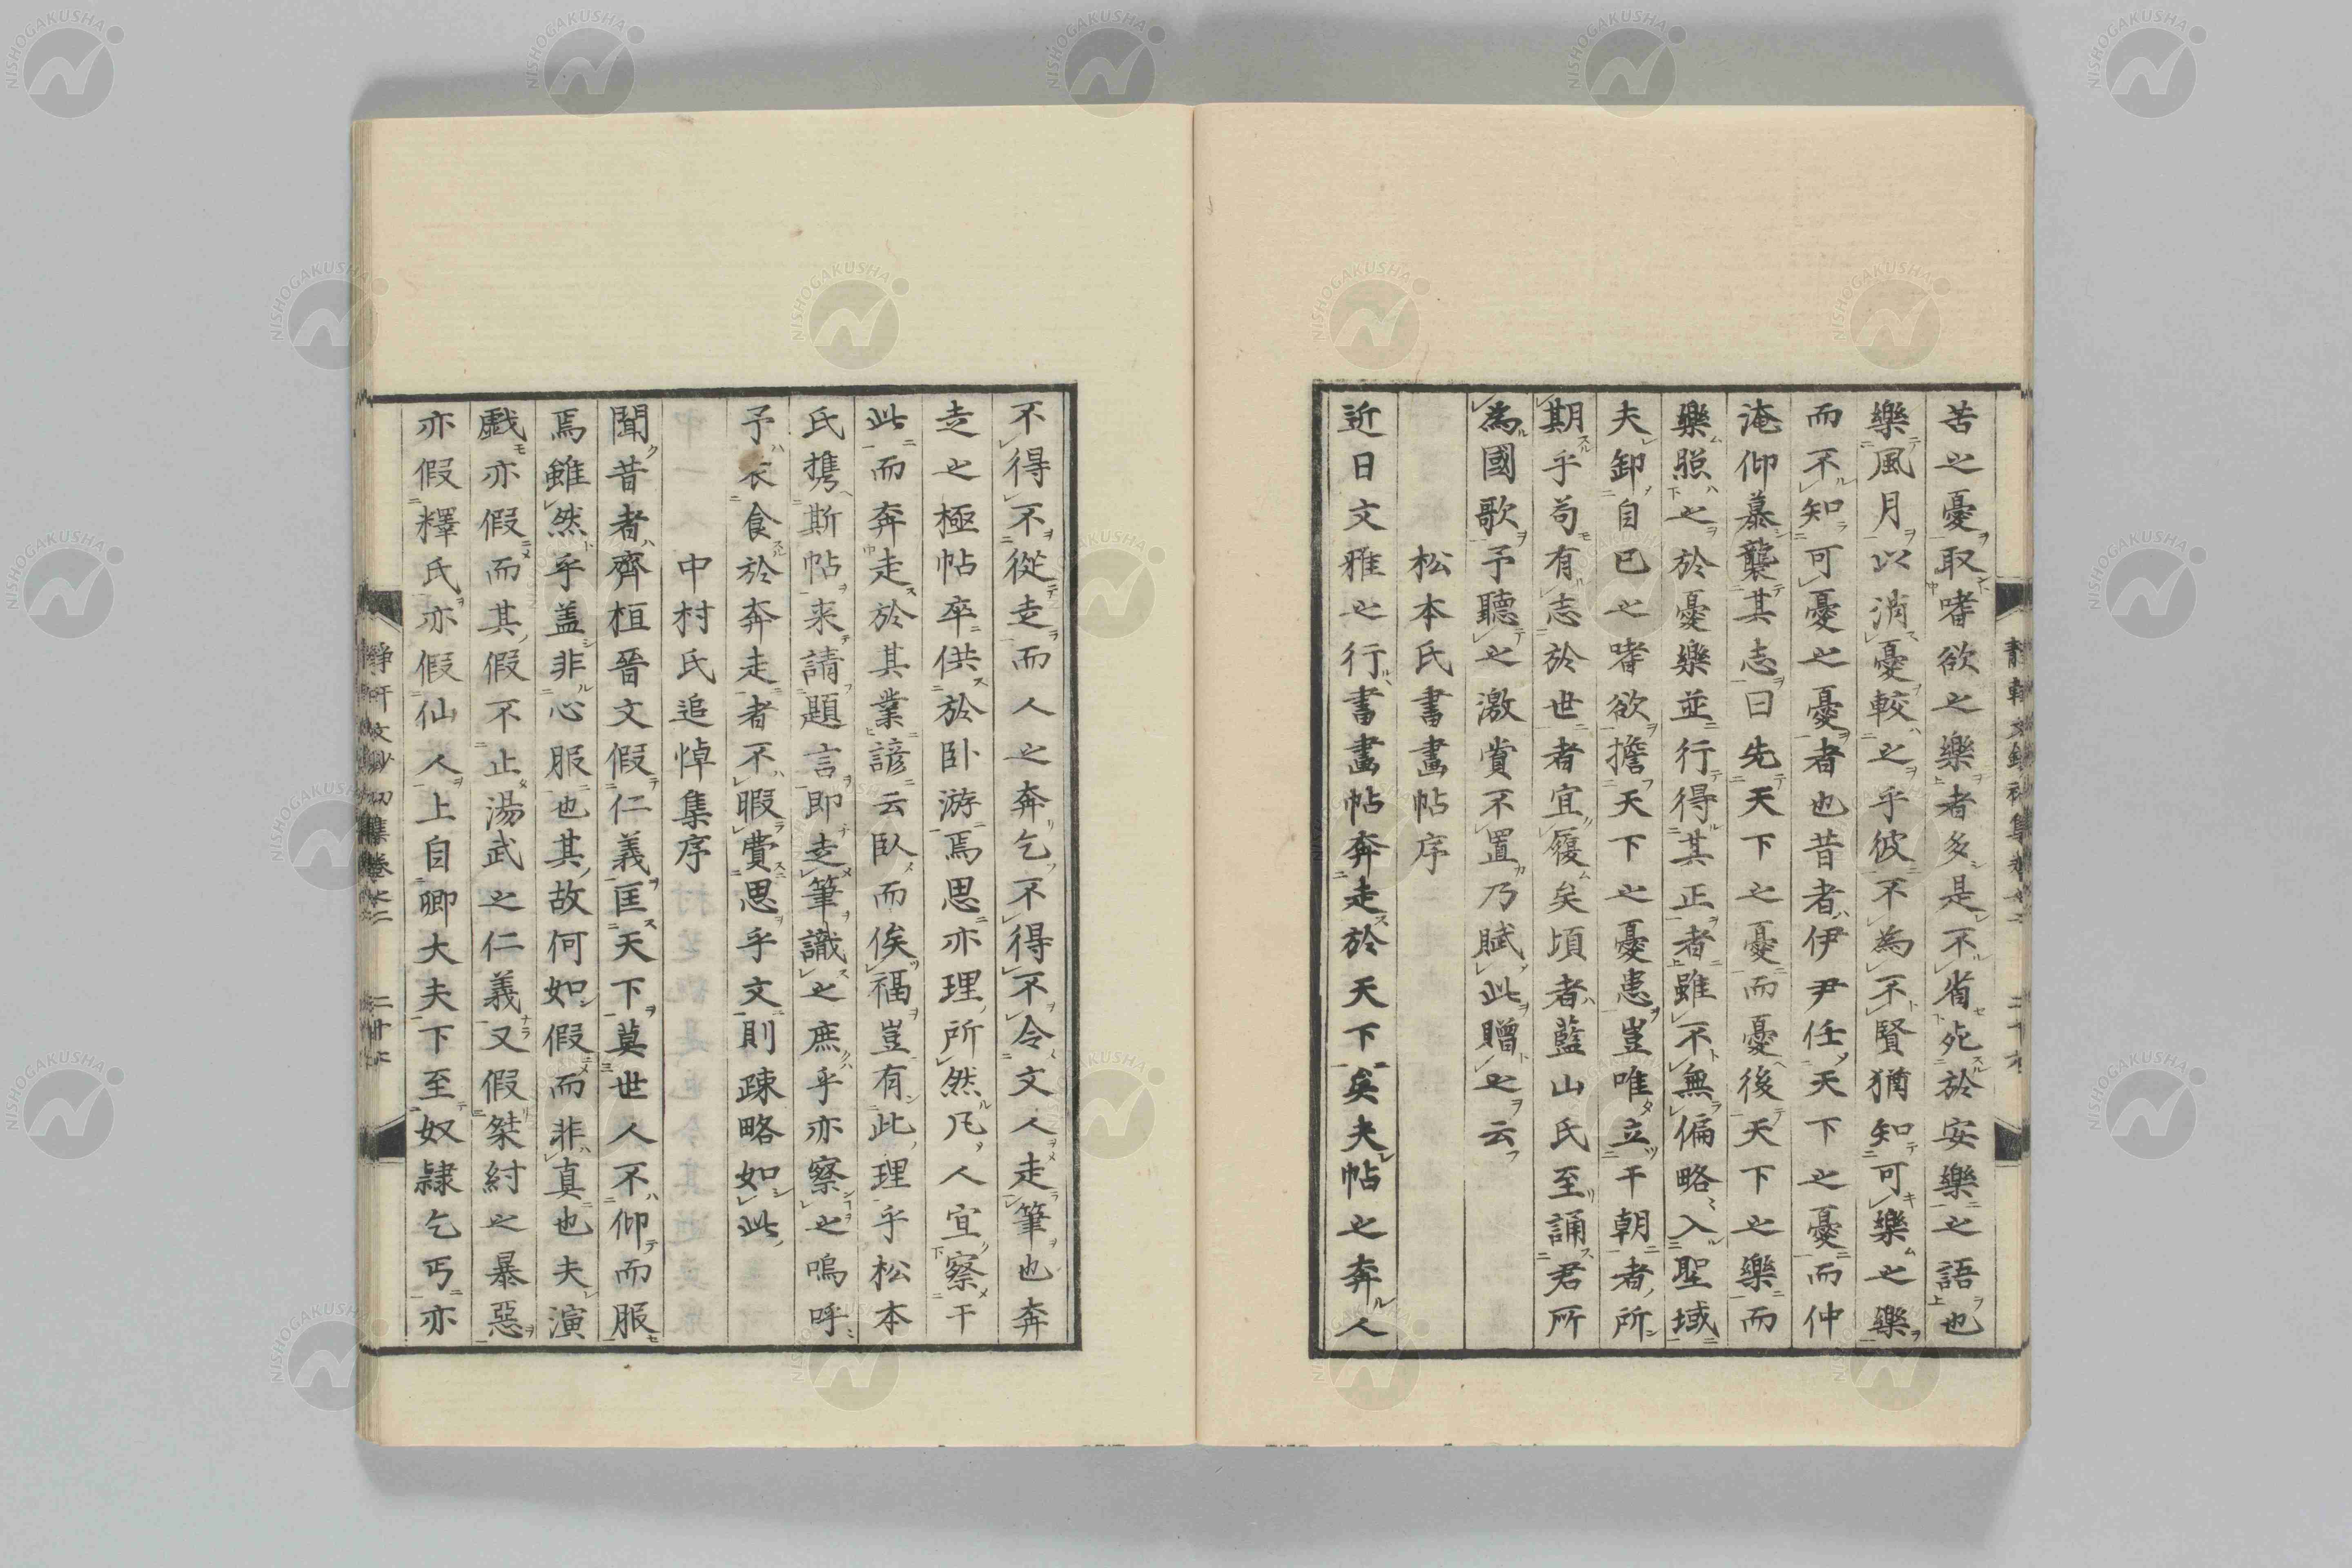 苦之憂取嗜欲之樂者多是不省死於安樂之語也
樂風月以消憂較之乎彼不為不賢猶知可樂之樂
而不知可憂之憂者也昔者伊尹任天下之憂而仲
淹仰慕襲其志曰先天下之憂而憂後天下之樂而
樂照之於憂樂並行得其正者雖不無偏略入聖域
夫卸自己之嗜欲擔天下之憂患豈唯立干朝者所
期乎苟有志於世者宜履矣頃者藍山氏至誦君所
為國歌予聽之激賞不置乃賦此贈之云
松本氏書畫帖序
近日文雅之行書畫帖奔走於天下矣夫帖之奔人
不得不從走而人之奔乞不得不令文人走筆也奔
走之極帖卒供於卧游焉思亦理所然凡人宜察干
此而奔走於其業諺云臥而俟福豈有此理乎松本
氏携斯帖来請題言即走筆識之庶乎亦察之嗚呼
予衣食於奔走者不暇費思乎文則疎略如此
中村氏追悼集序
聞昔者齊桓晉文假仁義匡天下莫世人不仰而服
焉雖然乎盖非心服也其故何如假而非真也夫演
戲亦假而其假不止湯武之仁義又假桀紂之暴惡
亦假釋氏亦假仙人上自卿大夫下至奴隷乞丐亦